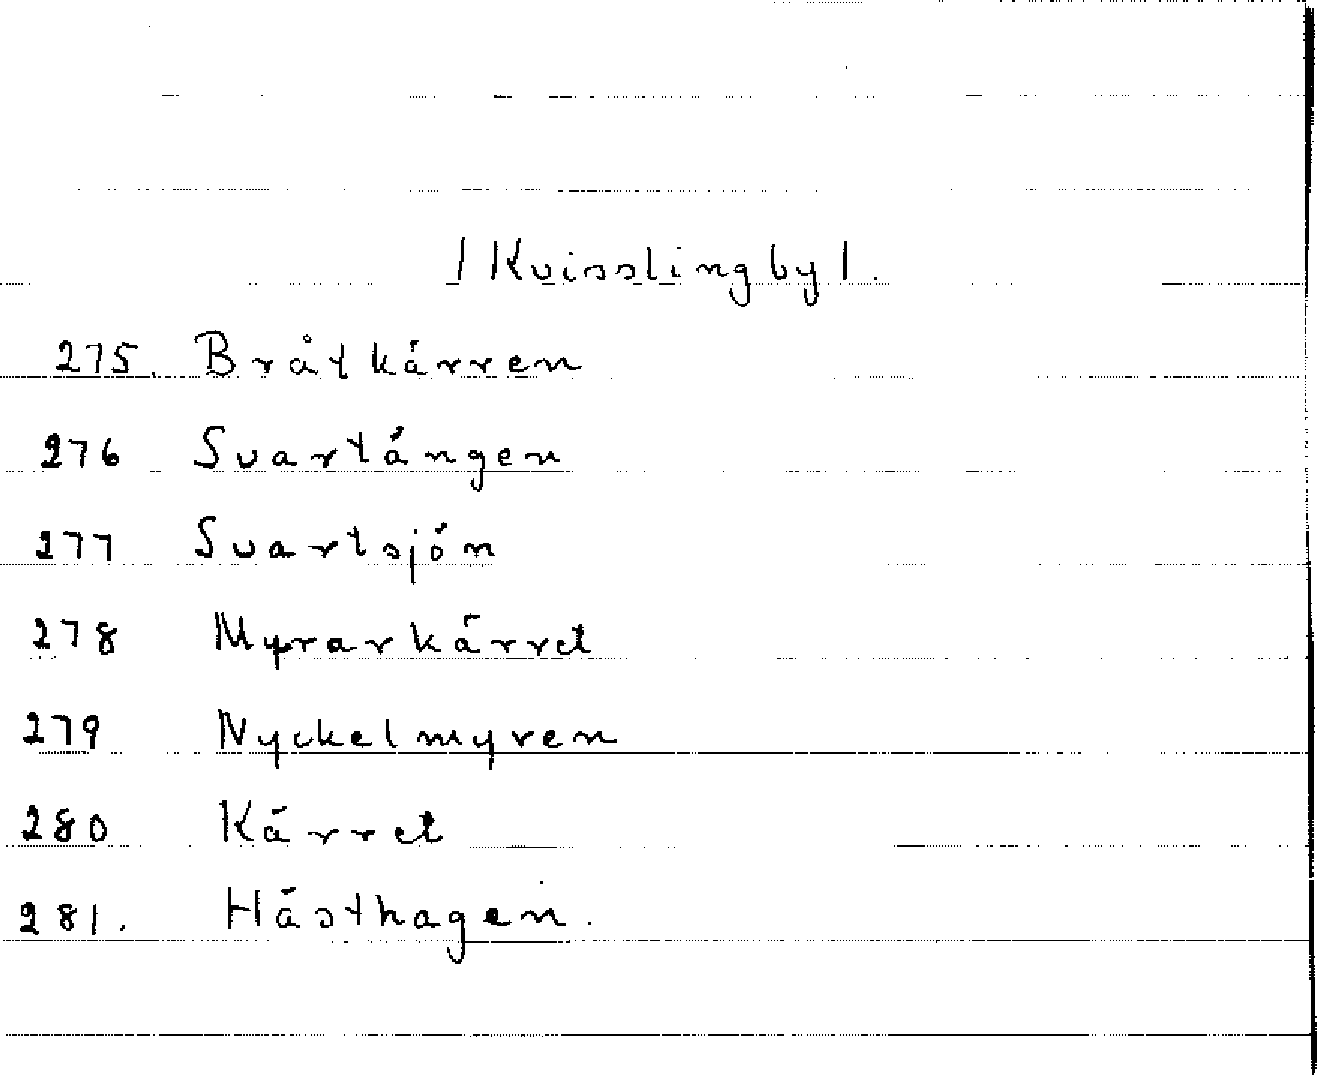 /Kvisslingby/.
275. Bråtkärren
276 Svartängen
277 Svartsjön
278 Myrarkärret
279 Nyckelmyren
280 Kärret
281. Hästhagen.